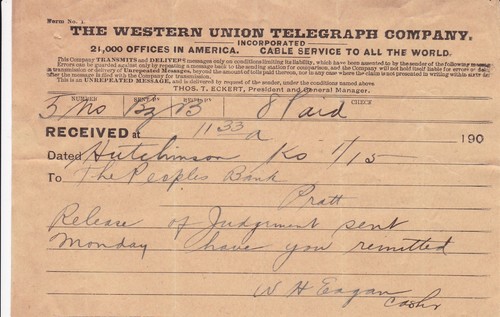 Form No. 1.
THE WESTERN UNION TELEGRAPH COMPANY.
INCORPORATED
21,000 OFFICES IN AMERICA. CABLE SERVICE TO ALL THE WORLD.
This Company TRANSMITS and DELIVERS messages only on conditions limiting its liability, which have been assented to by the sender of the following message.
Errors can be guarded against only by repeating a message back to the sending station for comparison, and the Company will not hold itself liable for errors or delays
in transmission or delivery of Unrepeated Messages, beyond the amount of tolls paid thereon, nor in any case where the claim is not presented in writing within sixty days
after the message is filed with the Company for transmission.
This is an UNREPEATED MESSAGE, and is delivered by request of the sender, under the conditions named above.
THOS. T. ECKERT, President and General Manager.
NUMBER SENT BY CHECK
8 Paid
RECEIVED at 1133 a 190
Dated Hutchinson Ks 1/15
To The Peoples Bank
Pratt
Release of Judgment sent
Monday have you remitted
W H Eagan
Cashr